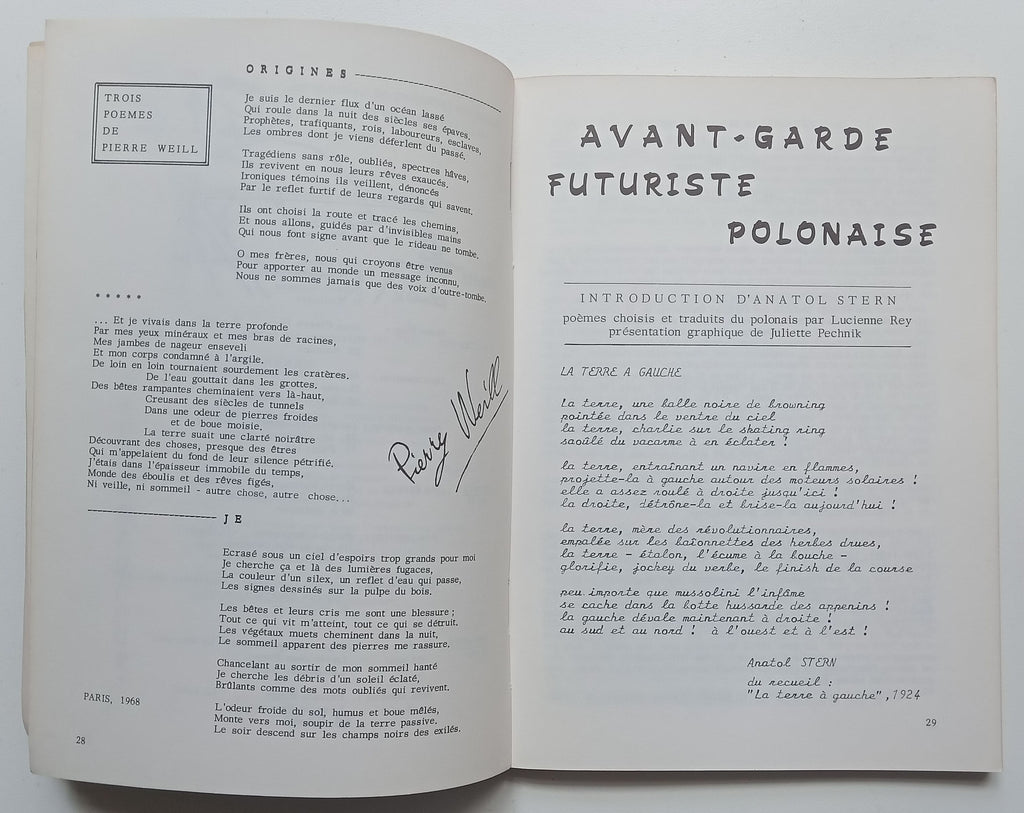 TROIS
POEMES
DE
PIERRE WEILL
ORIGINES
Je suis le dernier flux d'un océan lassé
Qui roule dans la nuit des siècles ses épaves,
Prophètes, trafiquants, rois, laboureurs, esclaves,
Les ombres dont je viens déferlent du passé.
Tragédiens sans rôle, oubliés, spectres hâves,
Ils revivent en nous leurs rêves exaucés,
Ironiques témoins ils veillent, dénoncés
Par le reflet furtif de leurs regards qui savent.
Ils ont choisi la route et tracé les chemins,
Et nous allons, guidés par d'invisibles mains
Qui nous font signe avant que le rideau ne tombe.
O mes frères, nous qui croyons être venus
Pour apporter au monde un message inconnu,
Nous ne sommes jamais que des voix d'outre-tombe.
.....
... Et je vivais dans la terre profonde
Par mes yeux minéraux et mes bras de racines,
Mes jambes de nageur enseveli
Et mon corps condamné à l'argile.
De loin en loin tournaient sourdement les cratères.
De l'eau gouttait dans les grottes.
Des bêtes rampantes cheminaient vers là-haut,
Creusant des siècles de tunnels
Dans une odeur de pierres froides
et de boue moisie.
La terre suait une clarté noirâtre
Découvrant des choses, presque des êtres
Qui m'appelaient du fond de leur silence pétrifié.
J'étais dans l'épaisseur immobile du temps,
Monde des éboulis et des rêves figés,
Ni veille, ni sommeil - autre chose, autre chose...
Pierre Weill
JE
Ecrasé sous un ciel d'espoirs trop grands pour moi
Je cherche ça et là des lumières fugaces,
La couleur d'un silex, un reflet d'eau qui passe,
Les signes dessinés sur la pulpe du bois.
Les bêtes et leurs cris me sont une blessure ;
Tout ce qui vit m'atteint, tout ce qui se détruit.
Les végétaux muets cheminent dans la nuit,
Le sommeil apparent des pierres me rassure.
Chancelant au sortir de mon sommeil hanté
Je cherche les débris d'un soleil éclaté,
Brûlants comme des mots oubliés qui revivent.
L'odeur froide du sol, humus et boue mêlés,
Monte vers moi, soupir de la terre passive.
Le soir descend sur les champs noirs des exilés.
PARIS, 1968
28
AVANT-GARDE
FUTURISTE
POLONAISE
INTRODUCTION D'ANATOL STERN
poèmes choisis et traduits du polonais par Lucienne Rey
présentation graphique de Juliette Pechnik
LA TERRE A GAUCHE
la terre, une balle noire de browning
pointée dans le ventre du ciel
la terre, charlie sur le skating ring
saoûlé du vacarme à en éclater !
la terre, entraînant un navire en flammes,
projette-la à gauche autour des moteurs solaires !
elle a assez roulé à droite jusqu'ici !
la droite, détrône-la et brise-la aujourd'hui !
la terre, mère des révolutionnaires,
empalée sur les baïonnettes des herbes drues,
la terre - étalon, l'écume à la bouche -
glorifie, jockey du verbe, le finish de la course
peu importe que mussolini l'infâme
se cache dans la botte hussarde des appenins !
la gauche dévale maintenant à droite !
au sud et au nord ! à l'ouest et à l'est !
Anatol STERN
du recueil :
"La terre à gauche", 1924
29